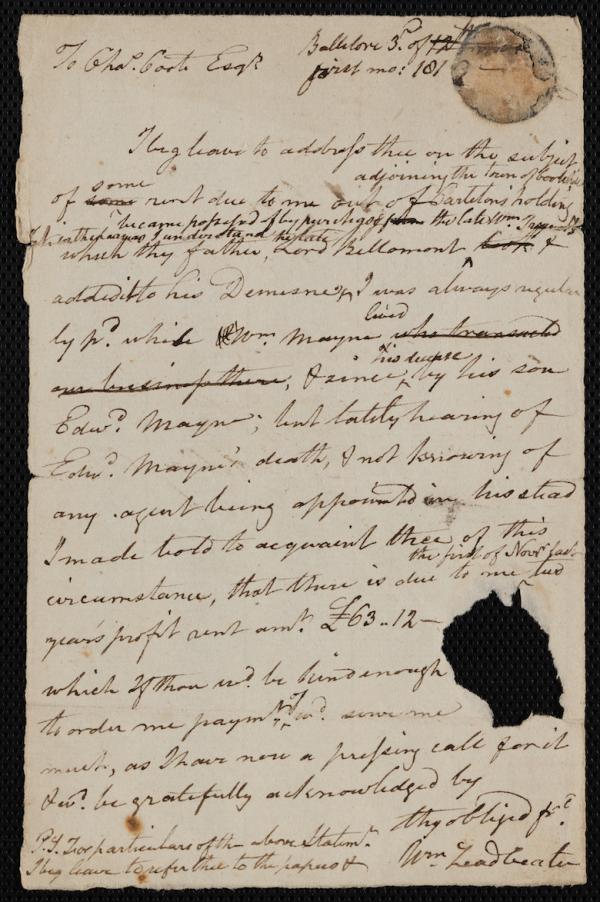 To Chas. Coote Esqr.
Ballitore 3d. of 12th
first mo: 181
I beg leave to address thee on the subject
adjoining the town of Cootehill
some
of some rent due to me out of Carleton's holding
became possessed of by purchase from the late Wm.
I understand
which thy father, Lord Bellamont took &
added it to his Demesne, & I was always regular
lived
ly pd. while Wm. Mayne who transacted
his decease
our business there, & since, by his son
Edwd. Mayne; but lately hearing of
Edwd. Mayne's death, & not knowing of
any agent being appointed in his stead
I made bold to acquaint thee of this
the first of Novr. last
circumstance, that there is due to me two
years profit rent amt. £63..12—
which if thou wd. be kind enough
to order me paymt. of wd. serve me
much, as I have now a pressing call for it
& wd. be gratefully acknowledged by
thy obliged frd.
Wm. Leadbeater
P.S. For particulars of the above Statemt.
I beg leave to refer thee to the papers &